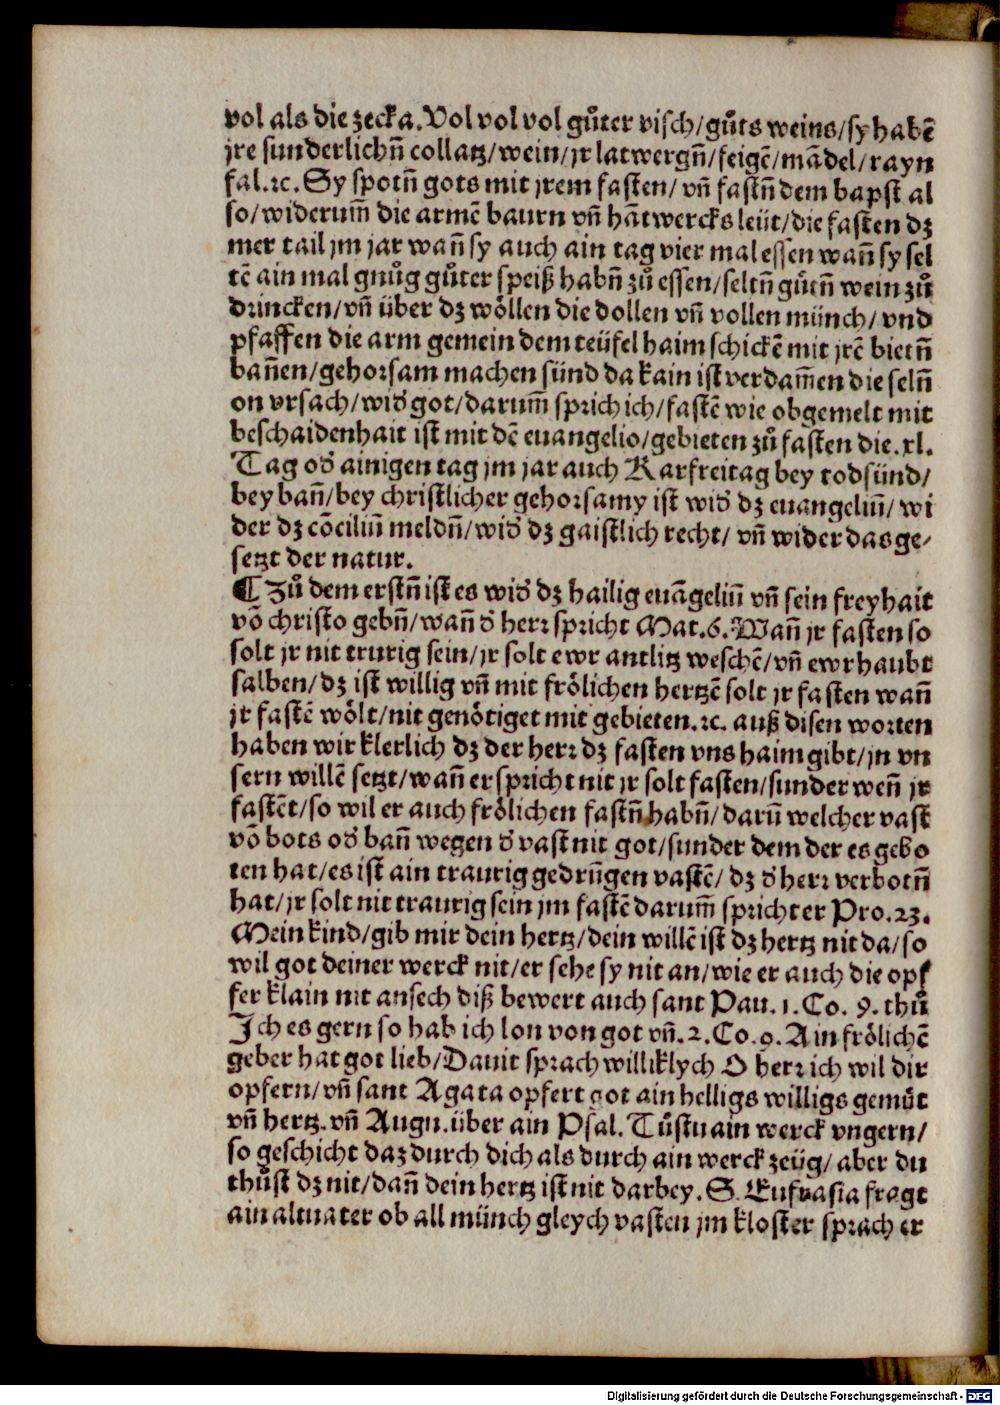 vol als die zecka. Vol vol vol gůter visch/gůts weins/sy habẽ
jre sunderlichñ collatz/wein/jr latwergñ/feigẽ/mãdel/rayn
fal.ꝛc. Sy spotñ gots mit jrem fasten/ vñ fastñ dem bapst al
so/widerum̃ die armẽ baurn vñ hãtwercks leüt/die fasten dz
mer tail jm jar wañ sy auch ain tag vier mal essen wañ sy sel
tẽ ain mal gnůg gůter speiß habñ zů essen/seltñ gůtñ wein zů
drincken/vñ über dz wöllen die dollen vñ vollen münch/ vnd
pfaffen die arm gemein dem teüfel haim schickẽ mit jrẽ bietñ
bañen/gehorsam machen sünd da kain ist verdam̃en die selñ
on vrsach/wid̕ got/darum̃ sprich ich/fastẽ wie obgemelt mit
beschaidenhait ist mit dẽ euangelio/gebieten zů fasten die.xl.
Tag od̕ ainigen tag jm jar auch Karfreitag bey todsünd/
bey bañ/bey christlicher gehorsamy ist wid̕ dz euangeliũ/ wi
der dz cõciliũ meldñ/wid̕ dz gaistlich recht/ vñ wider das ge⸗
setzt der natur.
¶ Zů dem erstñ ist es wid̕ dz hailig euãgeliũ vñ sein freyhait
võ christo gebñ/wañ d̕ herr spricht Mat.6. Wañ jr fasten so
solt jr nit trurig sein/jr solt ewr antlitz weschẽ/vñ ewr haubt
salben/dz ist willig vñ mit frölichen hertzẽ solt jr fasten wañ
jr fastẽ wölt/nit genötiget mit gebieten.ꝛc. auß disen worten
haben wir klerlich dz der herr dz fasten vns haim gibt/jn vn
sern willẽ setzt/wañ er spricht nit jr solt fasten/sunder weñ jr
fastẽt/so wil er auch frölichen fastñ habñ/darũ welcher vast
võ bots od̕ bañ wegen d̕ vast nit got/sunder dem der es gebo
ten hat/es ist ain traurig gedrũgen vastẽ/ dz d̕ herr verbotñ
hat/jr solt nit traurig sein jm fastẽ darum̃ spricht er Pro.23.
Mein kind/gib mir dein hertz/dein willẽ ist dz hertz nit da/so
wil got deiner werck nit/er sehe sy nit an/wie er auch die opf
fer klain nit ansech diß bewert auch sant Pau. 1. Co. 9. thů
Ich es gern so hab ich lon von got vñ.2.Co.9. Ain frölichẽ
geber hat got lieb/Dauit sprach williklych O herr ich wil dir
opfern/vñ sant Agata opfert got ain helligs willigs gemüt
vñ hertz. vñ Augu. über ain Psal. Tůstu ain werck vngern/
so geschicht daz durch dich als durch ain werck zeüg/ aber du
thůst dz nit/dañ dein hertz ist nit darbey. S. Eufrasia fragt
ain altuater ob all münch gleych vasten jm kloster sprach er
Digitalisierung gefördert durch die Deutsche Forschungsgemeinschaft - DFG